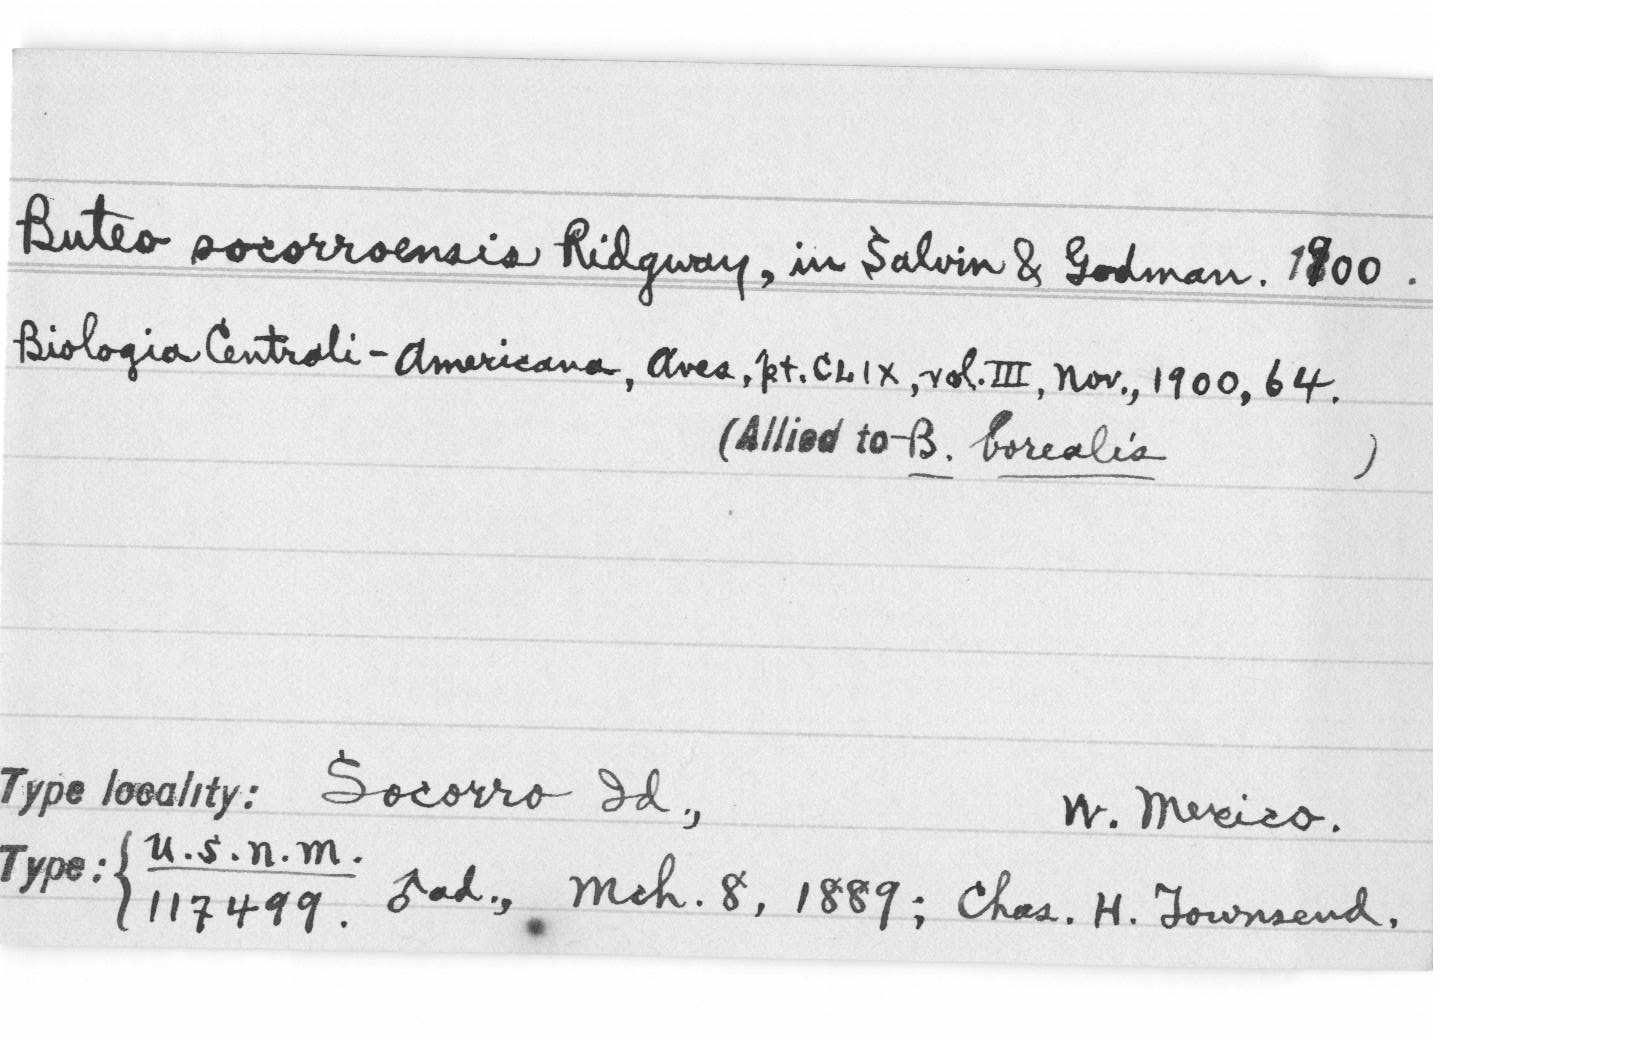 Buteo socorroensis Ridgway, in Salvin & Godman. 1900.
Biologia Centrali-Americana, Aves, pt. CLIX, vol. III, Nov., 1900, 64.
(Allied to B. borealis )
Type locality: Socorro Id., W. Mexico.
Type: { U.S.N.M.
117499. ♂ ad., Mch. 8, 1889; Chas. H. Townsend.